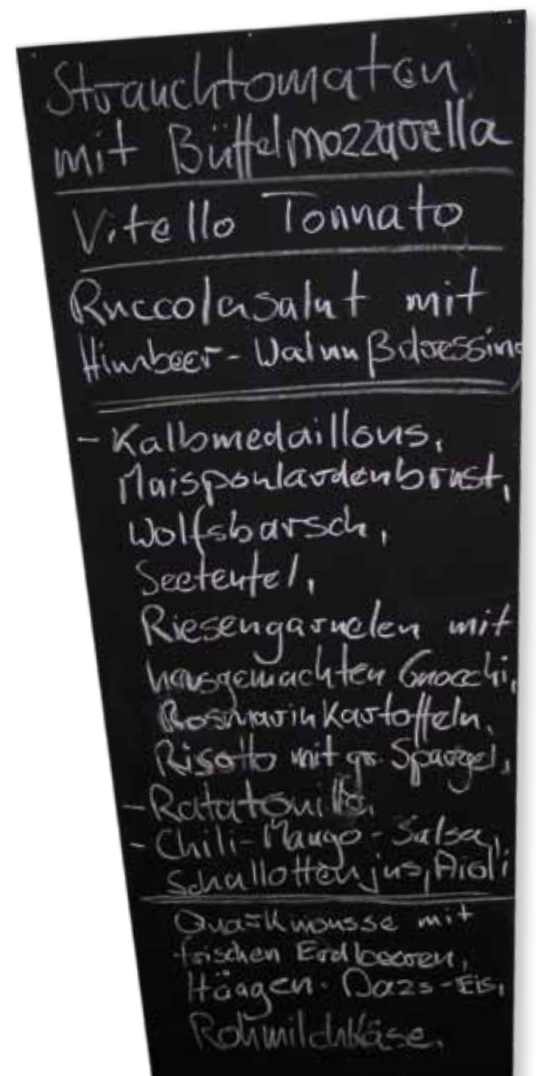 Strauchtomaten
mit Büffelmozzarella
Vitello Tonnato
Ruccolasalat mit
Himbeer-Walnußdressing
- Kalbmedaillons,
Maispoulardenbrust,
Wolfsbarsch,
Seeteufel,
Riesengarnelen mit
hausgemachten Gnocchi,
Rosmarin Kartoffeln,
Risotto mit gr. Spargel,
- Ratatouille,
- Chili-Mango-Salsa,
Schallottenjus, Aioli
Quarkmousse mit
frischen Erdbeeren,
Häagen-Dazs-Eis,
Rohmilchkäse,